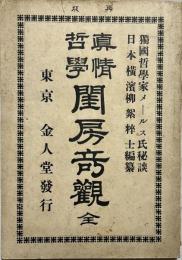 獨國哲學家メールス氏秘談
日本横濱柳絮粹士編纂
眞情
哲學
閨房奇觀 全
東京 金人堂發行